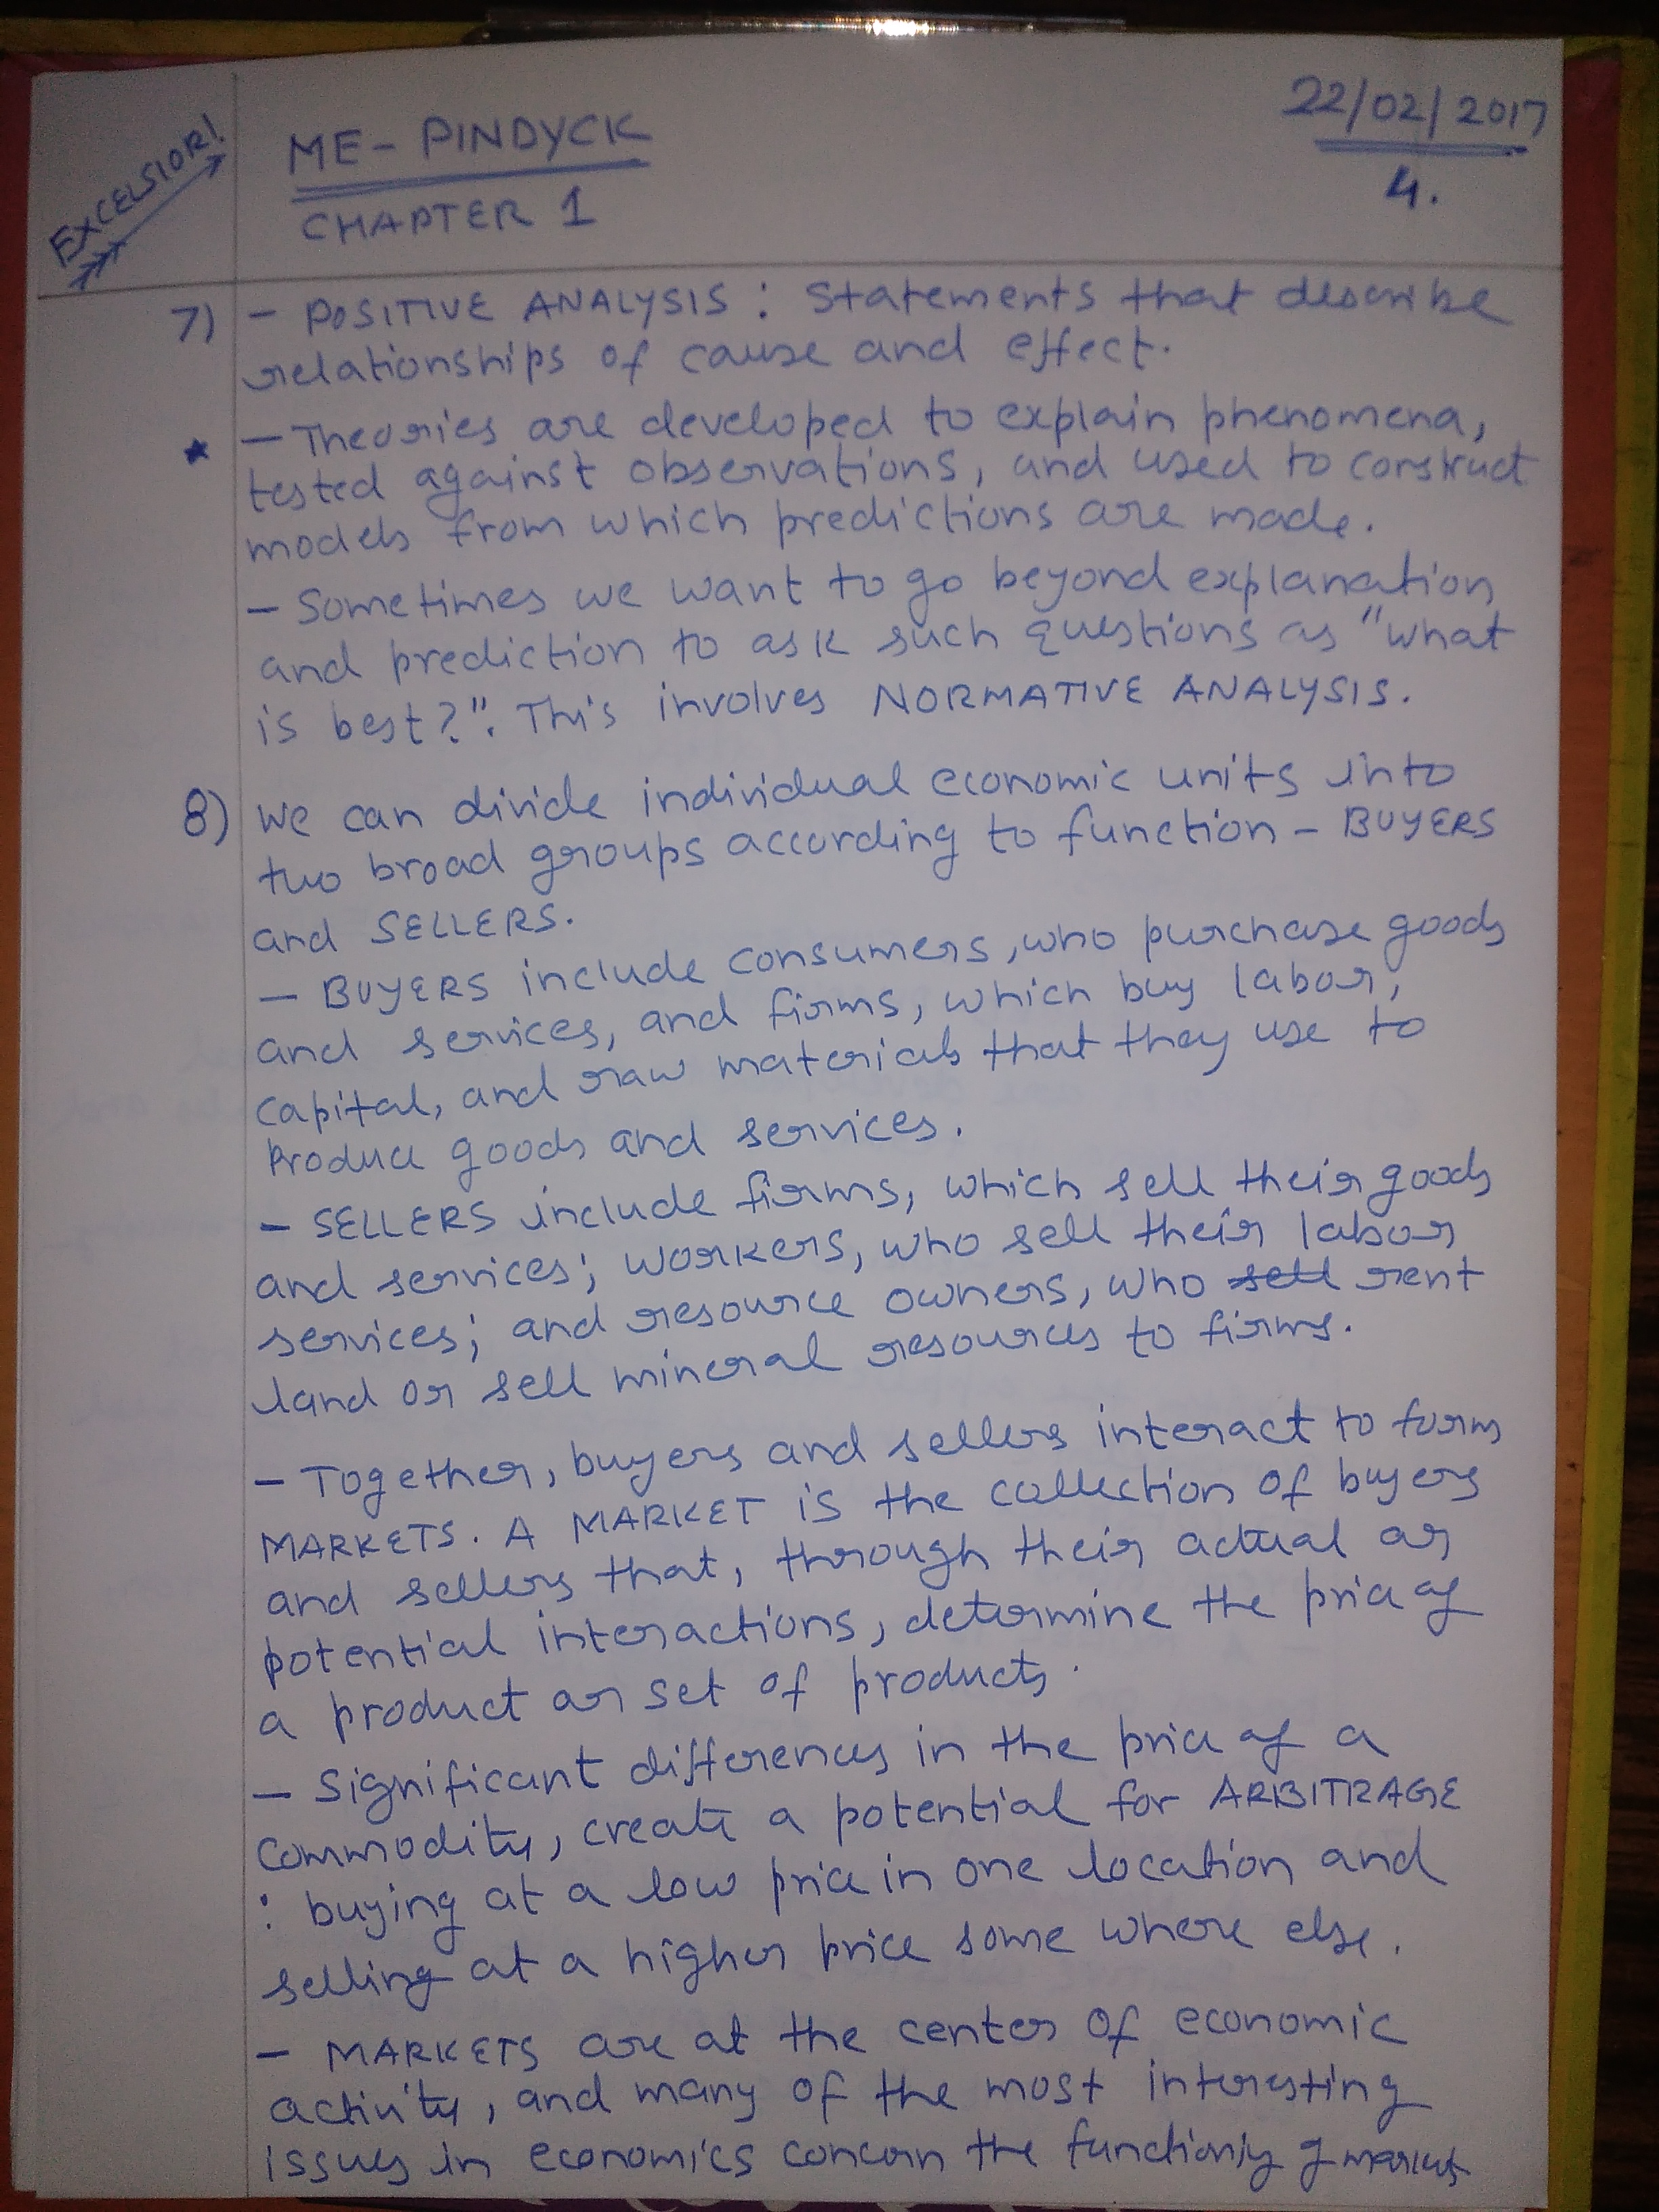 EXCELSIOR!
ME - PINDYCK
CHAPTER 1
22/02/2017
4.
7) - POSITIVE ANALYSIS : Statements that describe
relationships of cause and effect.
- Theories are developed to explain phenomena,
tested against observations, and used to construct
models from which predictions are made.
- Sometimes we want to go beyond explanation
and prediction to ask such questions as "what
is best?". This involves NORMATIVE ANALYSIS.
8) We can divide individual economic units into
two broad groups according to function - BUYERS
and SELLERS.
- BUYERS include consumers, who purchase goods
and services, and firms, which buy labor,
capital, and raw materials that they use to
produce goods and services.
- SELLERS include firms, which sell their goods
and services; workers, who sell their labor
services; and resource owners, who sell rent
land or sell mineral resources to firms.
- Together, buyers and sellers interact to form
MARKETS. A MARKET is the collection of buyers
and sellers that, through their actual or
potential interactions, determine the price of
a product or set of products.
- Significant differences in the price of a
commodity, create a potential for ARBITRAGE
: buying at a low price in one location and
selling at a higher price some where else.
- MARKETS are at the center of economic
activity, and many of the most interesting
issues in economics concern the functioning of markets